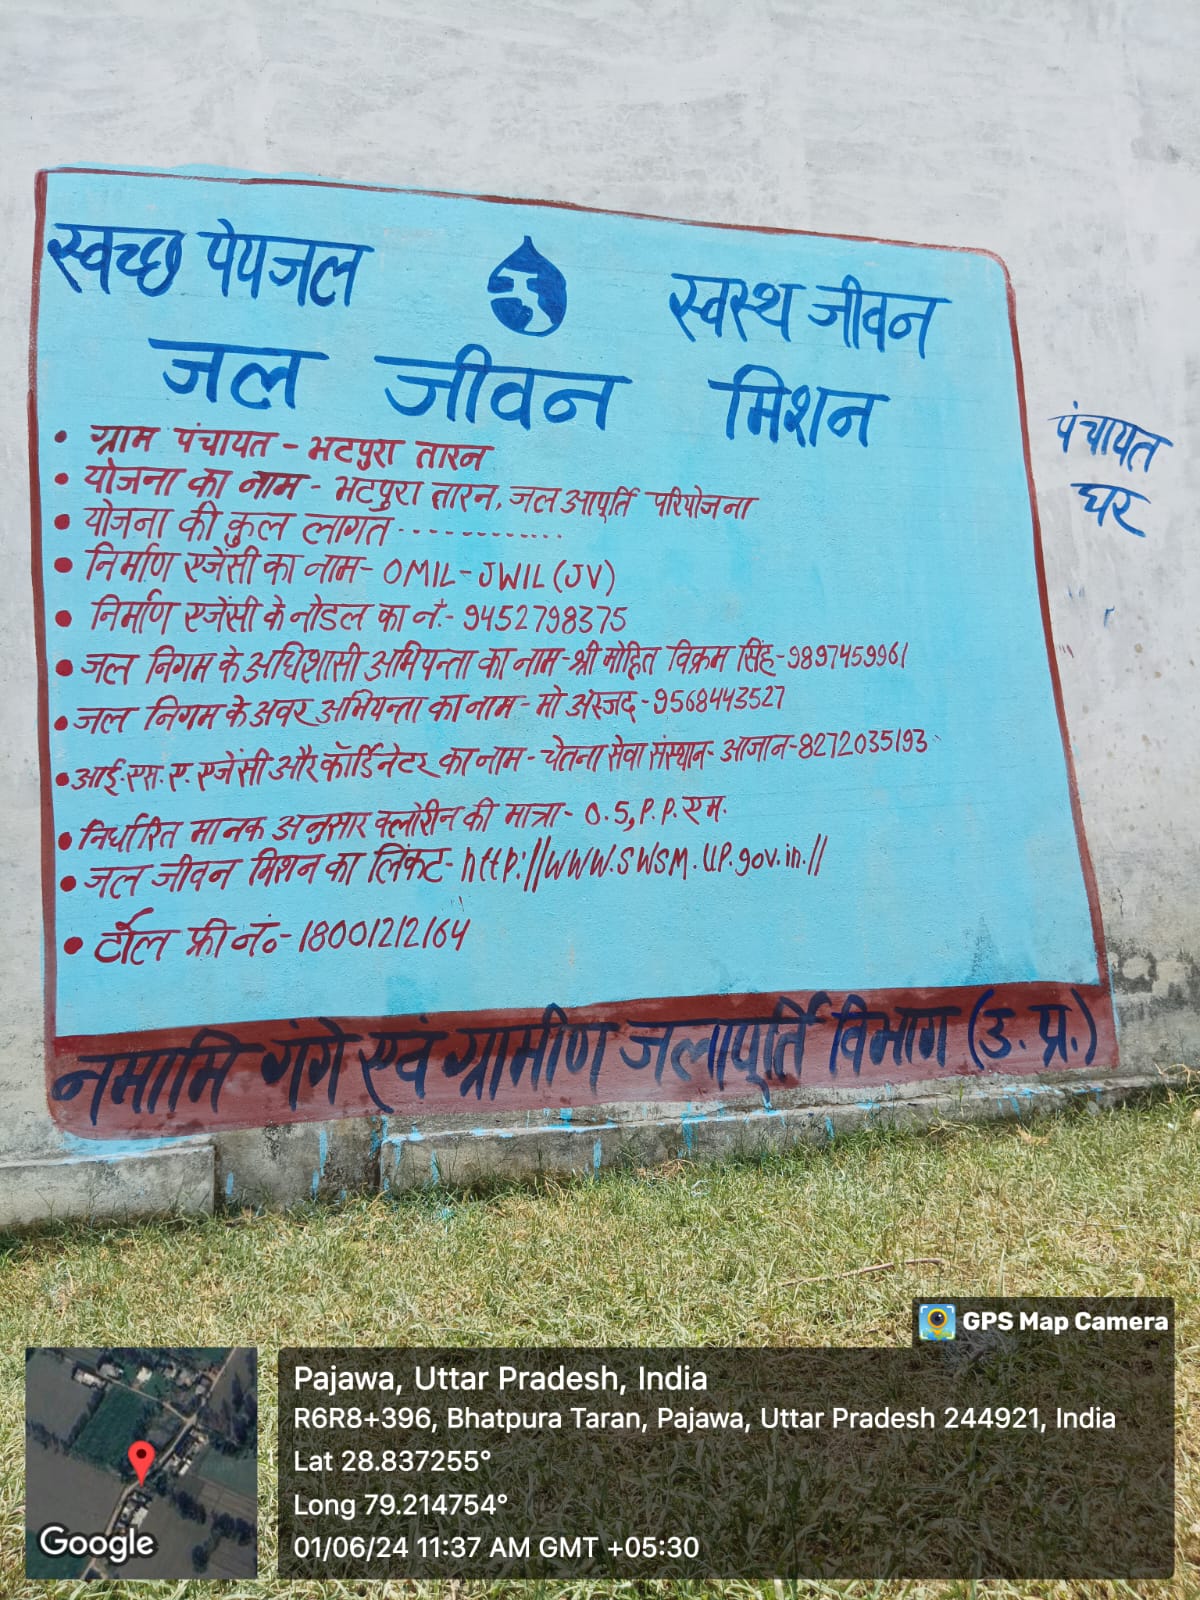 स्वच्छ पेयजल
स्वस्थ जीवन
जल जीवन मिशन
• ग्राम पंचायत - भटपुरा तारन
• योजना का नाम - भटपुरा तारन, जल आपूर्ति परियोजना
• योजना की कुल लागत ............
• निर्माण एजेंसी का नाम - OMIL - JWIL (JV)
• निर्माण एजेंसी के नोडल का नं.- 9452798375
• जल निगम के अधिशासी अभियन्ता का नाम - श्री मोहित विक्रम सिंह - 9897459961
• जल निगम के अवर अभियन्ता का नाम - मो अस्जद - 9568443527
• आई.एस.ए. एजेंसी और कॉर्डिनेटर का नाम - चेतना सेवा संस्थान - आजान - 8272035193
• निर्धारित मानक अनुसार क्लोरीन की मात्रा - 0.5, P.P. एम.
• जल जीवन मिशन का लिंकट - http://www.swsm.up.gov.in.//
• टोल फ्री नं० - 18001212164
नमामि गंगे एवं ग्रामीण जलापूर्ति विभाग (उ. प्र.)
पंचायत
घर
GPS Map Camera
Pajawa, Uttar Pradesh, India
R6R8+396, Bhatpura Taran, Pajawa, Uttar Pradesh 244921, India
Lat 28.837255°
Long 79.214754°
01/06/24 11:37 AM GMT +05:30
Google